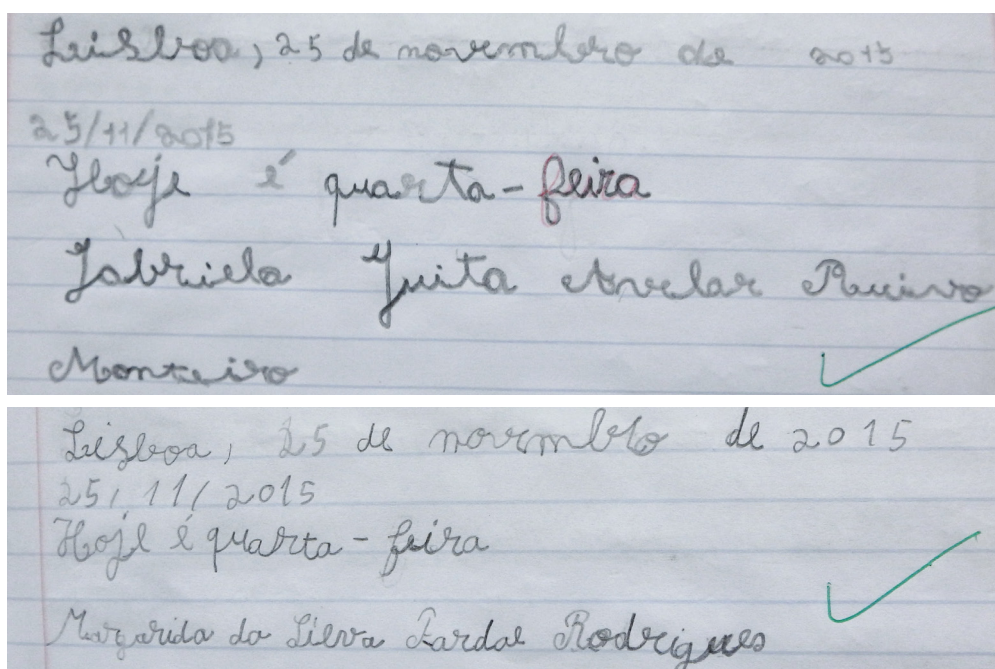 Leisboa, 25 de novembro de 2015
25/11/2015
Hoje é quarta-feira
Gabriela Guita Avelar Ruivo
Monteiro
Lisboa, 25 de novembro de 2015
25/11/2015
Hoje é quarta-feira
Margarida da Silva Rodrigues